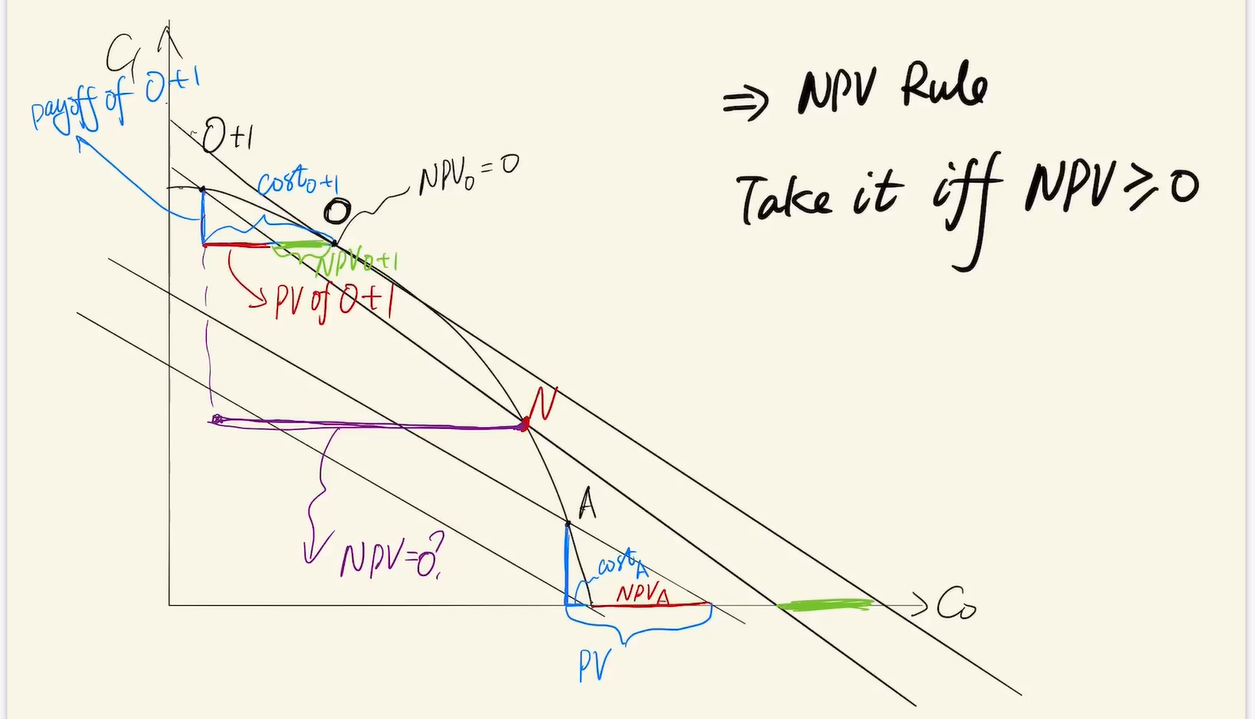 C₁
payoff of O+1
O+1
cost₀₊₁
O
NPV₀ = 0
NPV₀₊₁
PV of O+1
N
NPV=0?
A
cost_A
NPV_A
PV
C₀
⇒ NPV Rule
Take it iff NPV ≥ 0